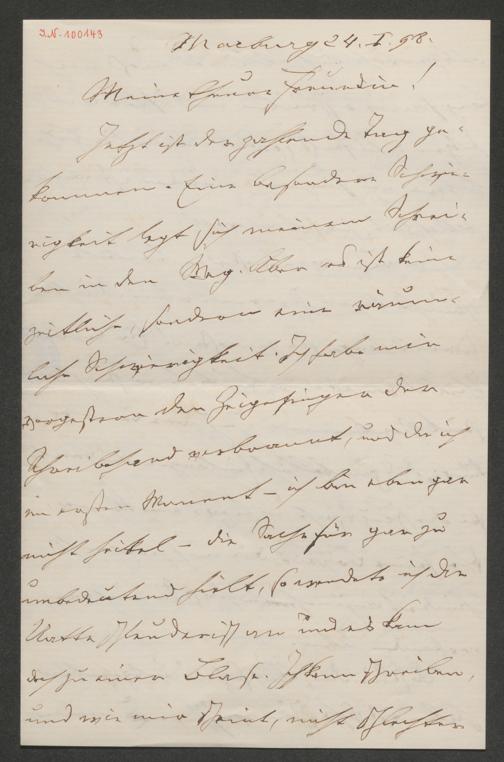 I.N. 100143
Marburg 24. I. 98.
Meine theure Freundin!
Jetzt ist der passende Tag ge-
kommen. Eine besondere Schwie-
rigkeit legt sich meinem Schrei-
ben in den Weg. Aber es ist keine
zeitliche, sondern eine räum-
liche Schwierigkeit. Ich habe mir
vorgestern den Zeigefinger der
Schreibehand verbrannt, und da ich
im ersten Moment – ich bin eben gar
nicht heikel – die Sache für gar zu
unbedeutend hielt, so wendete ich die
Watte an und es kam
doch zu einer Blase. Ich kann schreiben,
und wie mir scheint, nicht schlechter